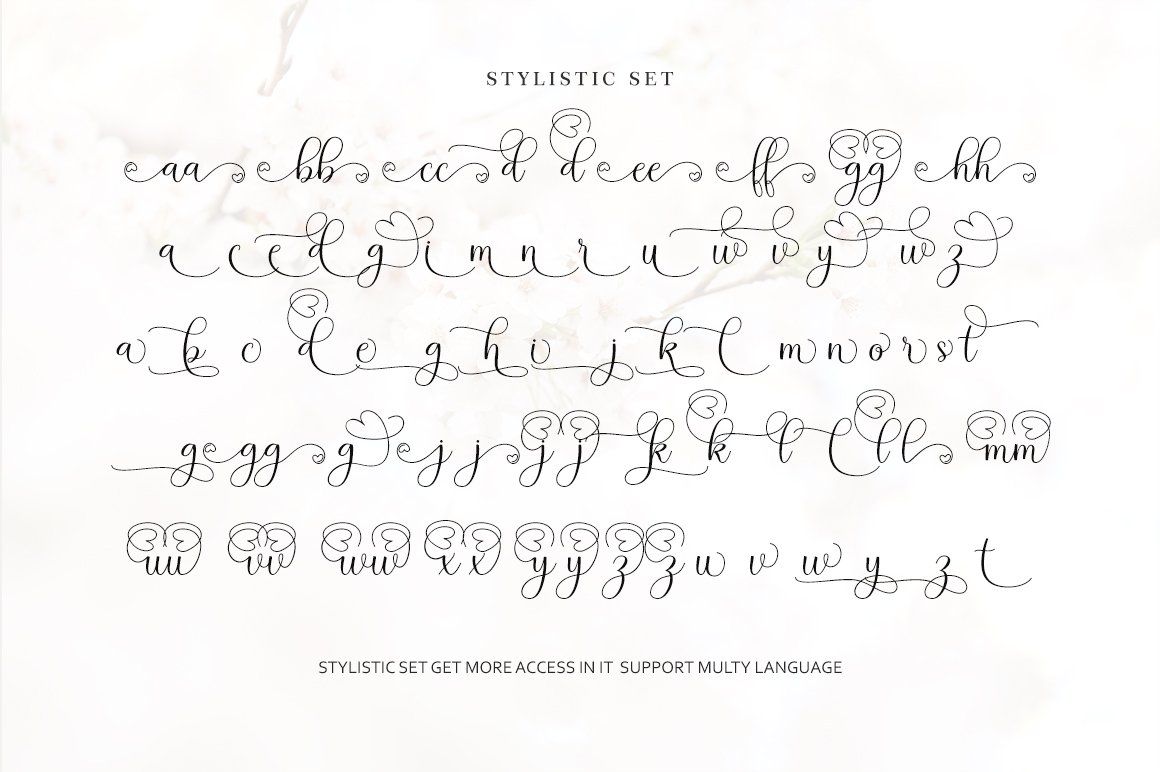 STYLISTIC SET
aa bb cc d d ee ff gg hh
a c e d g i m n r u w v y w z
a b c d e g h i j k l m n o r s t
g gg g j j j j k k l l l l mm
uu vv ww x x y y z z u v w y z t
STYLISTIC SET GET MORE ACCESS IN IT SUPPORT MULTY LANGUAGE